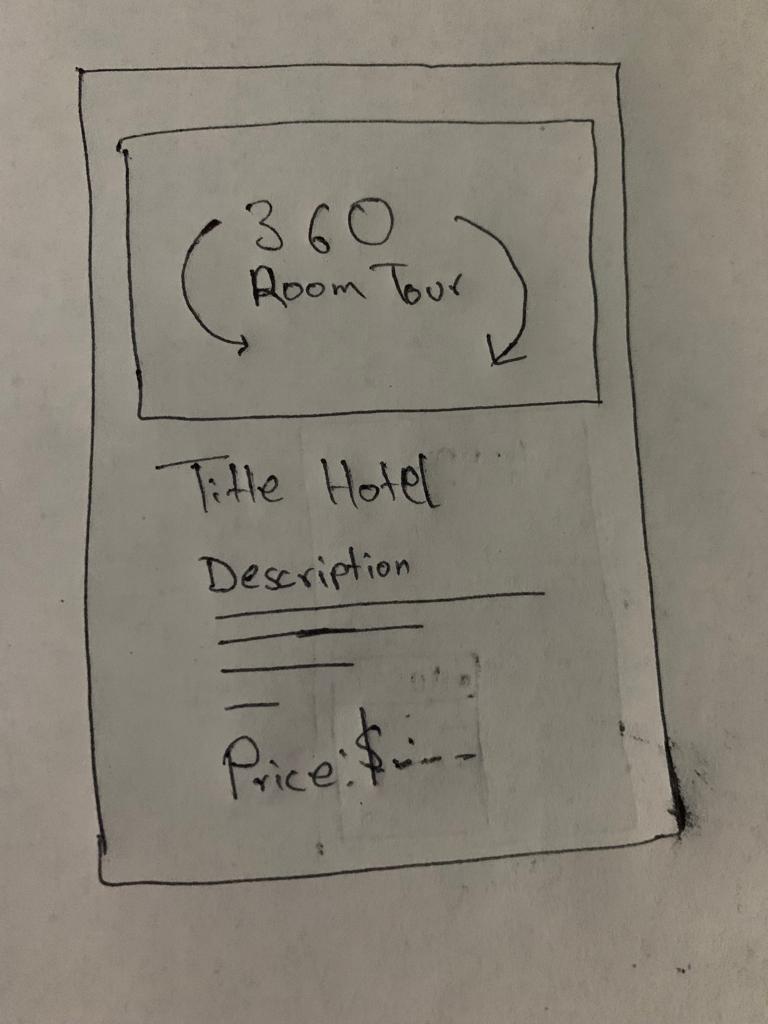 360
Room Tour
Title Hotel
Description
Price: $----